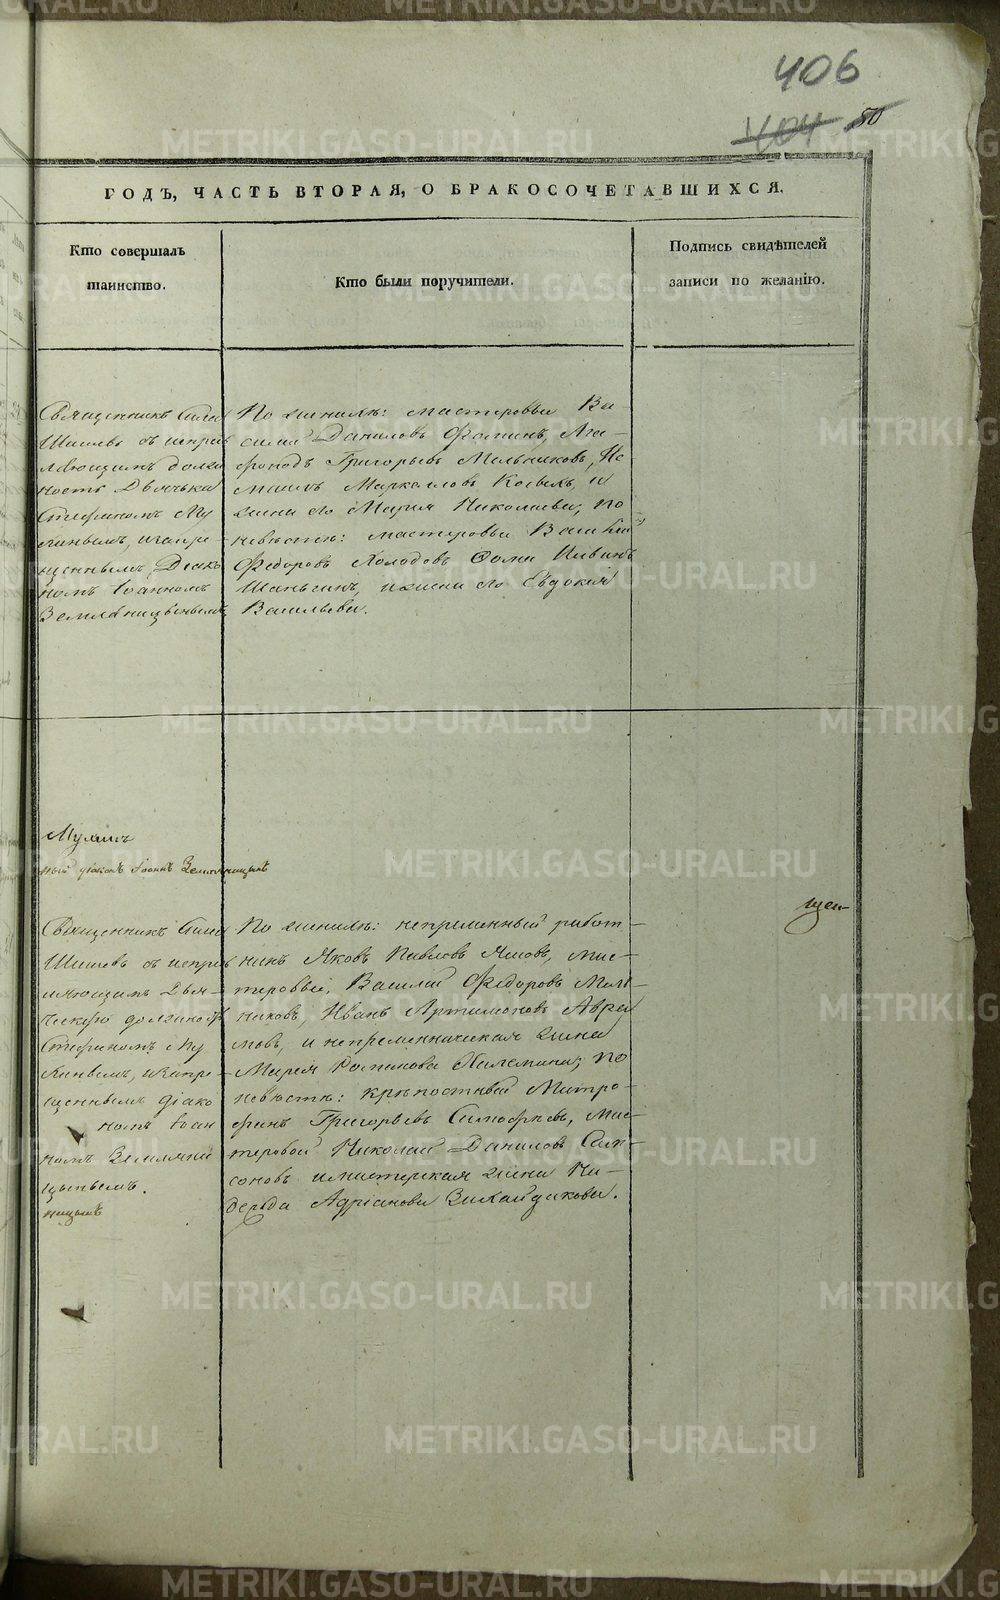 406
404 50
ГОДЪ, ЧАСТЬ ВТОРАЯ, О БРАКОСОЧЕТАВШИХСЯ.
Кто совершалъ
таинство.
Кто были поручители.
Подпись свидѣтелей
записи по желанію.
Священникъ
Шишевъ съ исправ
ляющимъ долж
ность Дьячька
Стефаномъ Му
хинымъ, и запре
щеннымъ Діако
номъ Іоанномъ
Земляницынымъ
По женихѣ: мастеровыи Ва-
силий Даниловъ Фоминъ, Ага-
фонодъ Григорьевъ Мельниковъ, Из
маилъ Маркеловъ Косыхъ, и
жена его Марія Николаева; по
невѣстѣ: мастеровыи Василий
Федоровъ Холодовъ Фома Ивинъ
Шаньгинъ, и жена его Евдокия
Васильева.
Мухинъ
ный діаконъ Іоаннъ Земляницынъ
Священникъ
Шишевъ съ исправ
ляющимъ Дья-
ческую должность
Стефаномъ Му
хинымъ, и запре-
щеннымъ діако
номъ Іоан
номъ Земляни
цынымъ.
ницынъ
По женихѣ: непременный работ-
никъ Яковъ Павловъ, мас-
теровыи, Василий Федоровъ Мель-
никовъ, Иванъ Артамоновъ Авра
мовъ, и непременническая жена
Марія Романова; по
невѣстѣ: крѣпостный Митро-
фанъ Григорьевъ Тимофѣевъ, мас-
теровой Николай Даниловъ Сам-
соновъ и мастерская жена На-
дежда Адріанова.
щен-
METRIKI.GASO-URAL.RU